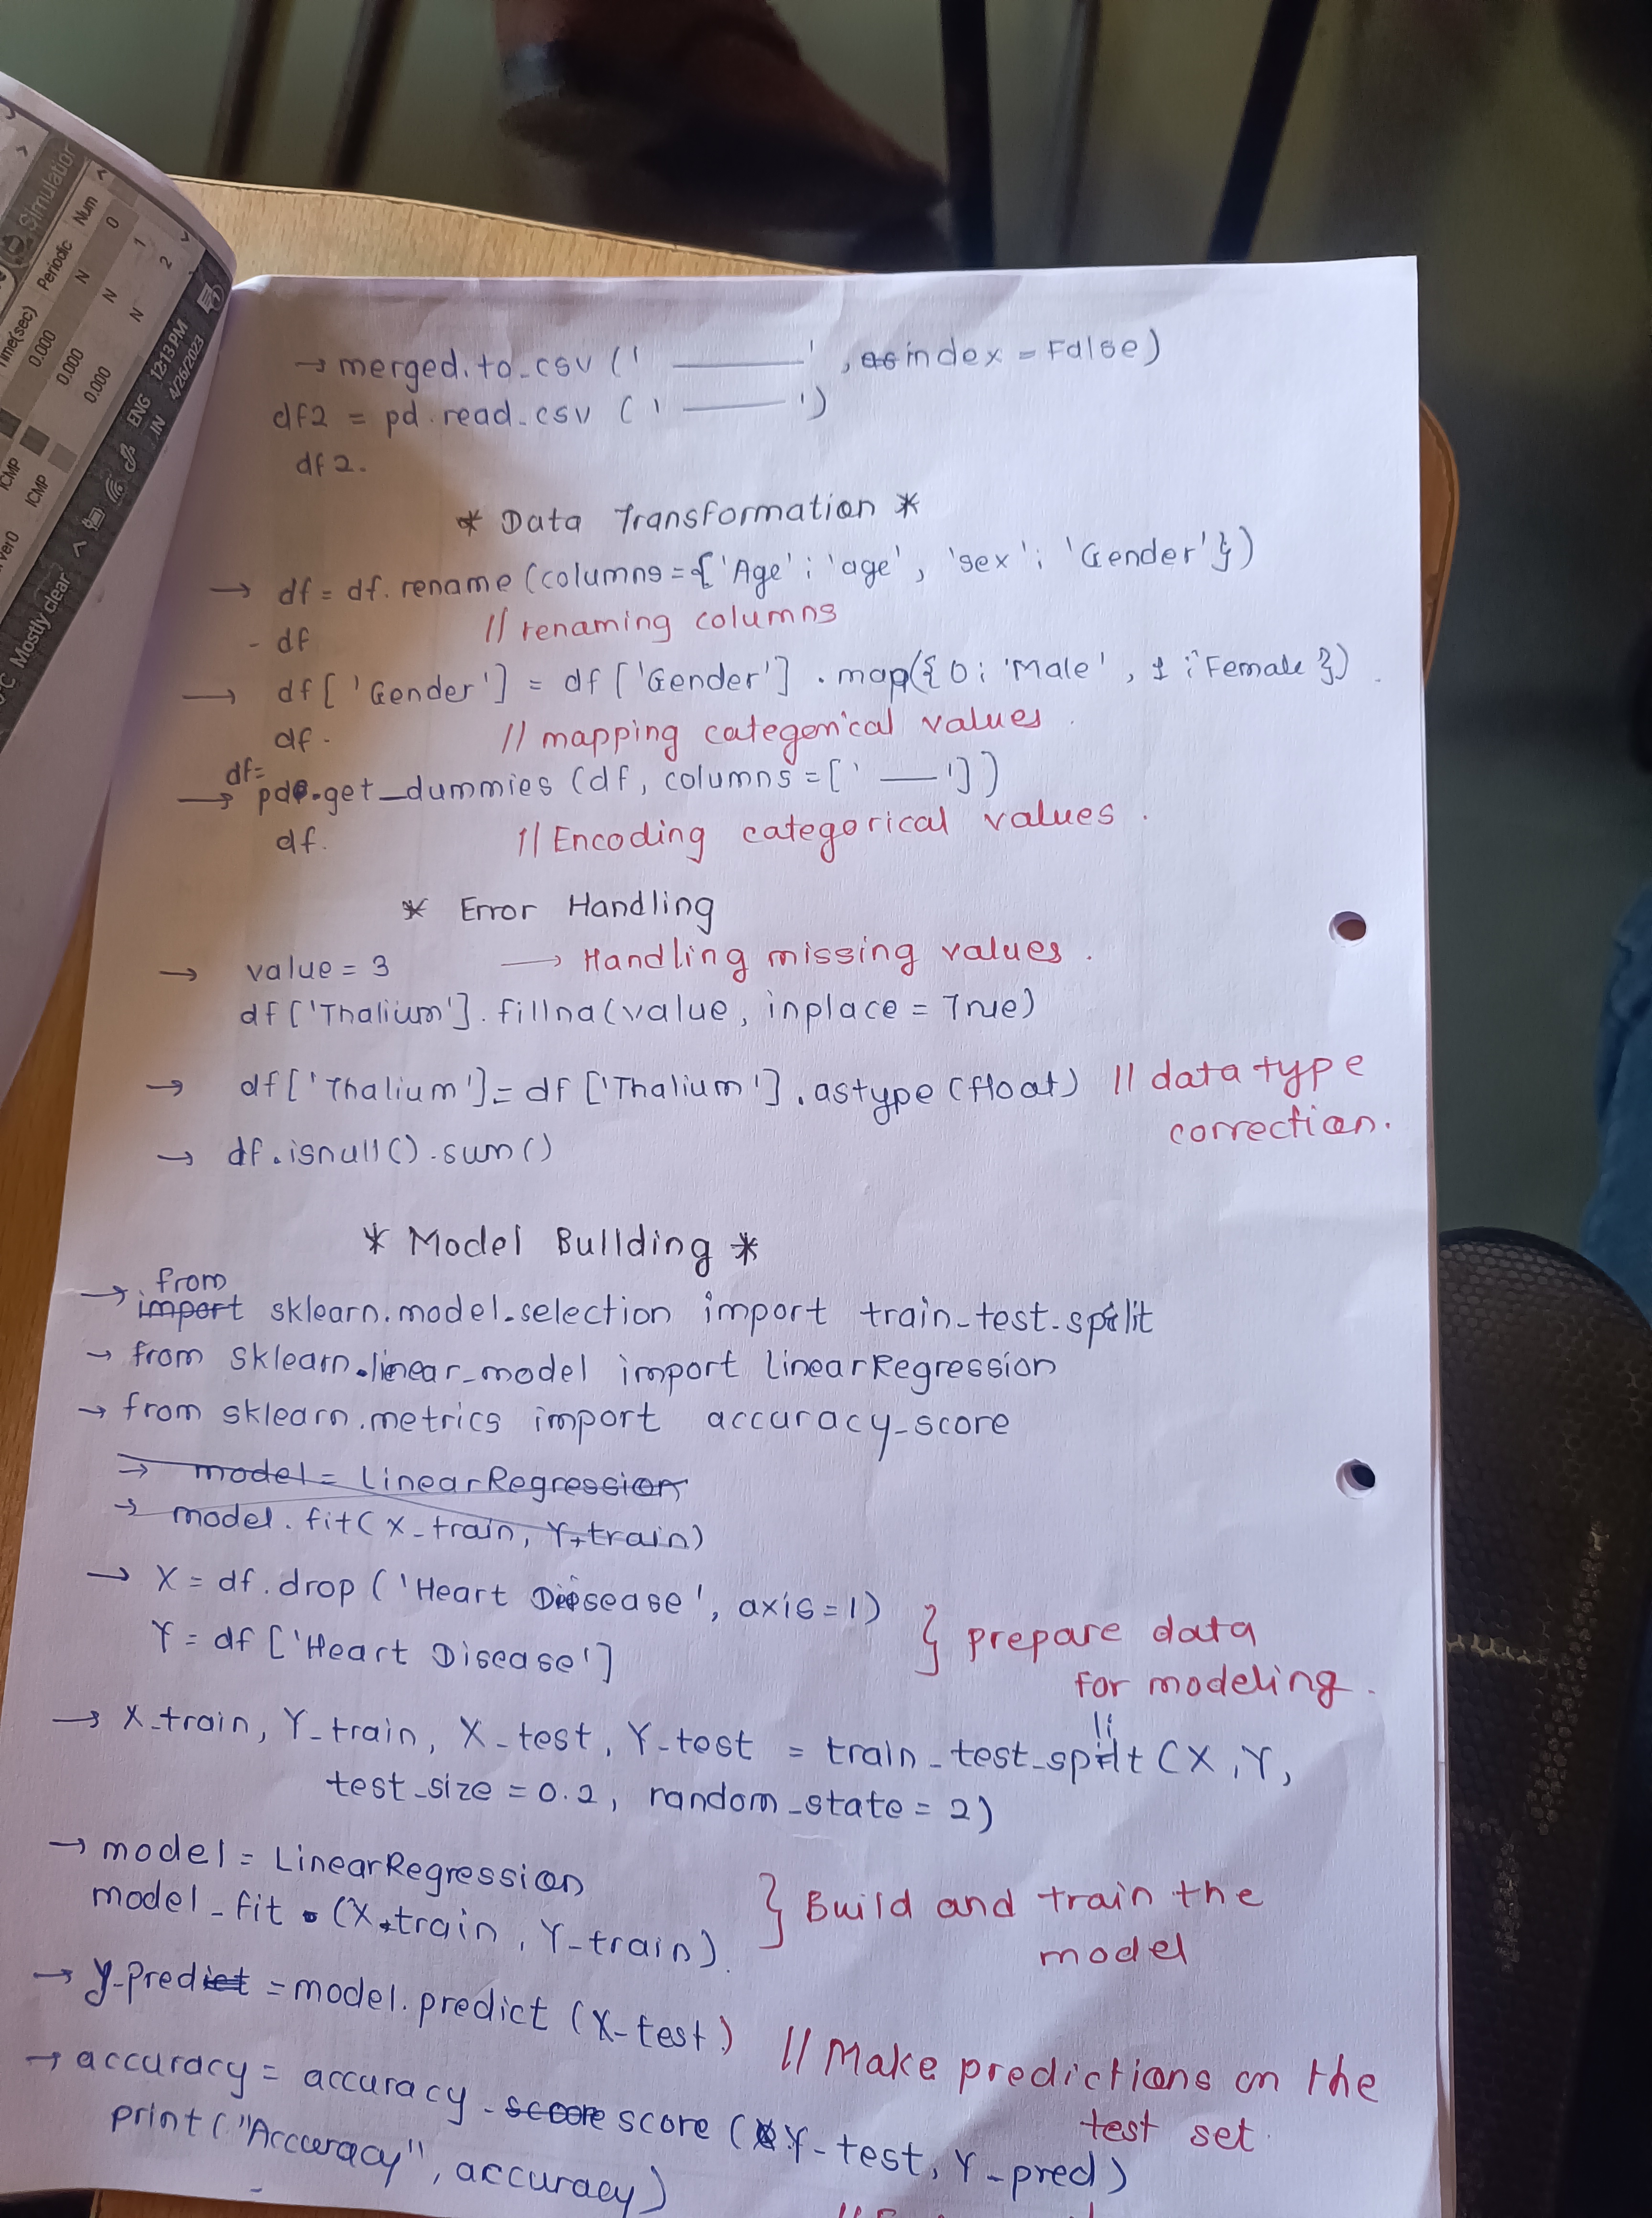 Simulation
Time(sec) Periodic Num
0.000 N 0
0.000 N 1
0.000 N 2
ICMP
ICMP
ENG 12:13 PM
IN 4/26/2023
C Mostly clear
→ merged.to_csv (' ———', as index = False)
df2 = pd.read_csv (' ——— ')
df2.
* Data Transformation *
→ df = df.rename (columns = {'Age' : 'age', 'sex' : 'Gender'})
- df // renaming columns
→ df['Gender'] = df['Gender'].map({0 : 'Male', 1 : 'Female})
df. // mapping categorical values.
df=
→ pd.get_dummies (df, columns = [' — '])
df. // Encoding categorical values.
* Error Handling
→ value = 3 → Handling missing values.
df['Thalium'].fillna(value, inplace = True)
→ df['Thalium'] = df['Thalium'].astype(float) // data type
correction.
→ df.isnull().sum()
* Model Building *
from
→ import sklearn.model_selection import train_test_split
→ from sklearn.linear_model import LinearRegression
→ from sklearn.metrics import accuracy_score
→ model = LinearRegression
→ model.fit(X_train, Y_train)
→ X = df.drop ('Heart Disease', axis = 1)
Y = df['Heart Disease'] } prepare data
for modeling.
→ X_train, Y_train, X_test, Y_test = train_test_split (X, Y,
test_size = 0.2, random_state = 2)
→ model = LinearRegression
model_fit . (X_train, Y_train). } Build and train the
model
→ y_predict = model.predict (X_test) // Make predictions on the
test set.
→ accuracy = accuracy_score score (Y_test, Y_pred)
print("Accuracy", accuracy)